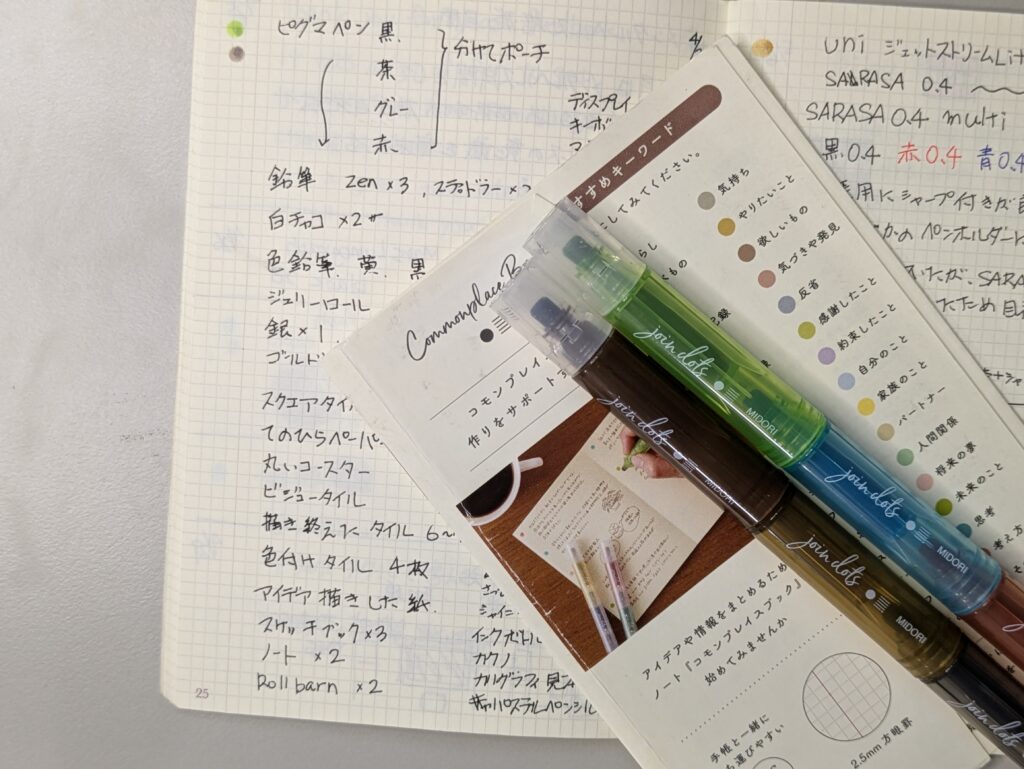 ピグマペン 黒
茶
グレー
赤
分けてポーチ
鉛筆 zen×3, ステッドラー×2
白チャコ ×2
色鉛筆 黄 黒
ジェリーロール
銀×1
ゴールド
スクエアタイル
てのひら
丸いコースター
ビジュータイル
描き終えた タイル 6〜
色付けタイル 4枚
アイデア描きした紙
スケッチブック×3
ノート ×2
Roll barn ×2
25
4/
ディスプレイ
キーボ
インクボトル
カクノ
カリグラフィ 見本
パステルペンシル
uni ジェットストリームLit
SARASA 0.4
SARASA 0.4 multi
黒0.4 赤0.4 青0.4
用にシャープ付きが
かの ペンホルダー
たが、SARA
れたため
すすめキーワード
してみてください。
らし
くもの
記録
気持ち
やりたいこと
欲しいもの
気づきや発見
反省
感謝したこと
約束したこと
自分のこと
家族のこと
パートナー
人間関係
将来の夢
未来のこと
思考
考え方
Commonplace B
コモンプレイ
作りをサポートす
アイデアや情報をまとめるため
ノート『コモンプレイスブック』
始めてみませんか
手帳と一緒に
ち運びやすい
2.5mm 方眼罫
join dots
MIDORI
join dots
MIDORI
join dots
MIDORI
join dots
MIDORI
join dots
join dots